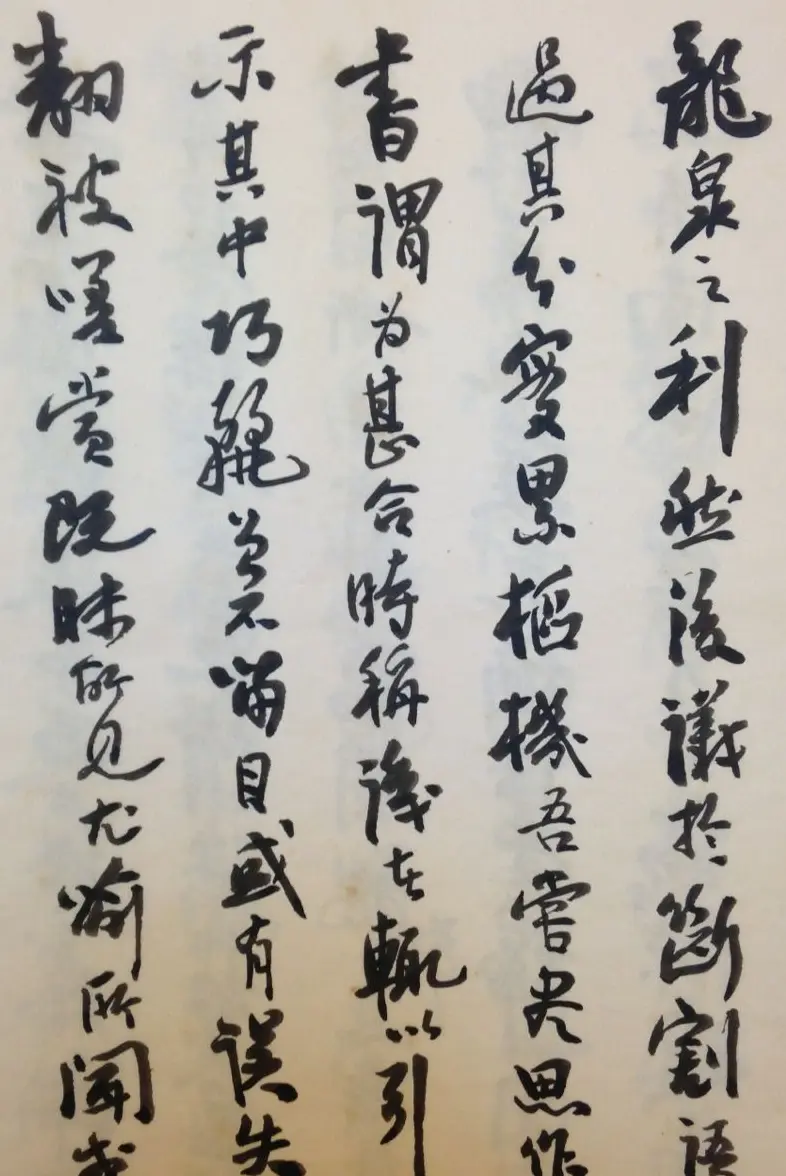 龍泉之利然後議於斷割語
過其分實累樞機吾嘗盡思作
書謂為甚合時稱識者輒以引
示其中巧麗曾不留目或有誤失
翻被嗟賞既昧所見尤喻所聞或